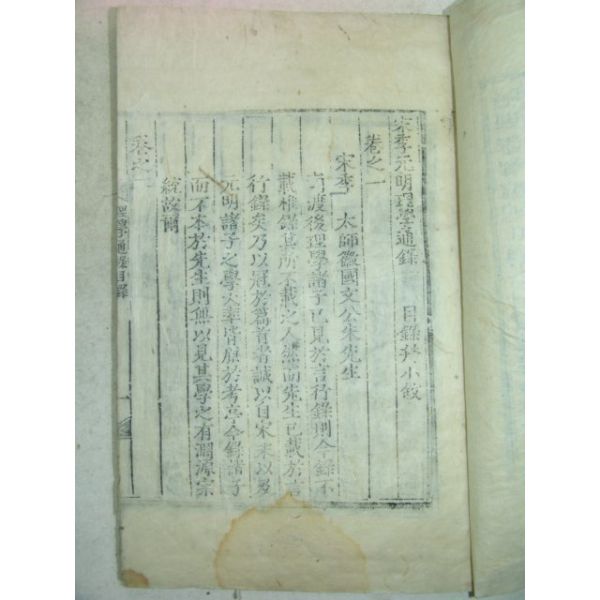 宋季元明理學通錄 目錄幷小敘
卷之一
宋季 太師徽國文公朱先生
南渡後理學諸子已見於言行錄則今錄不
載惟錄其所不載之人然而先生已載於言
行錄矣乃以冠於篇首者誠以自宋末以及
元明諸子之學大率皆原於考亭今錄諸子
而不本於先生則無以見其學之有淵源宗
統故爾
卷之
理學通錄目錄 一